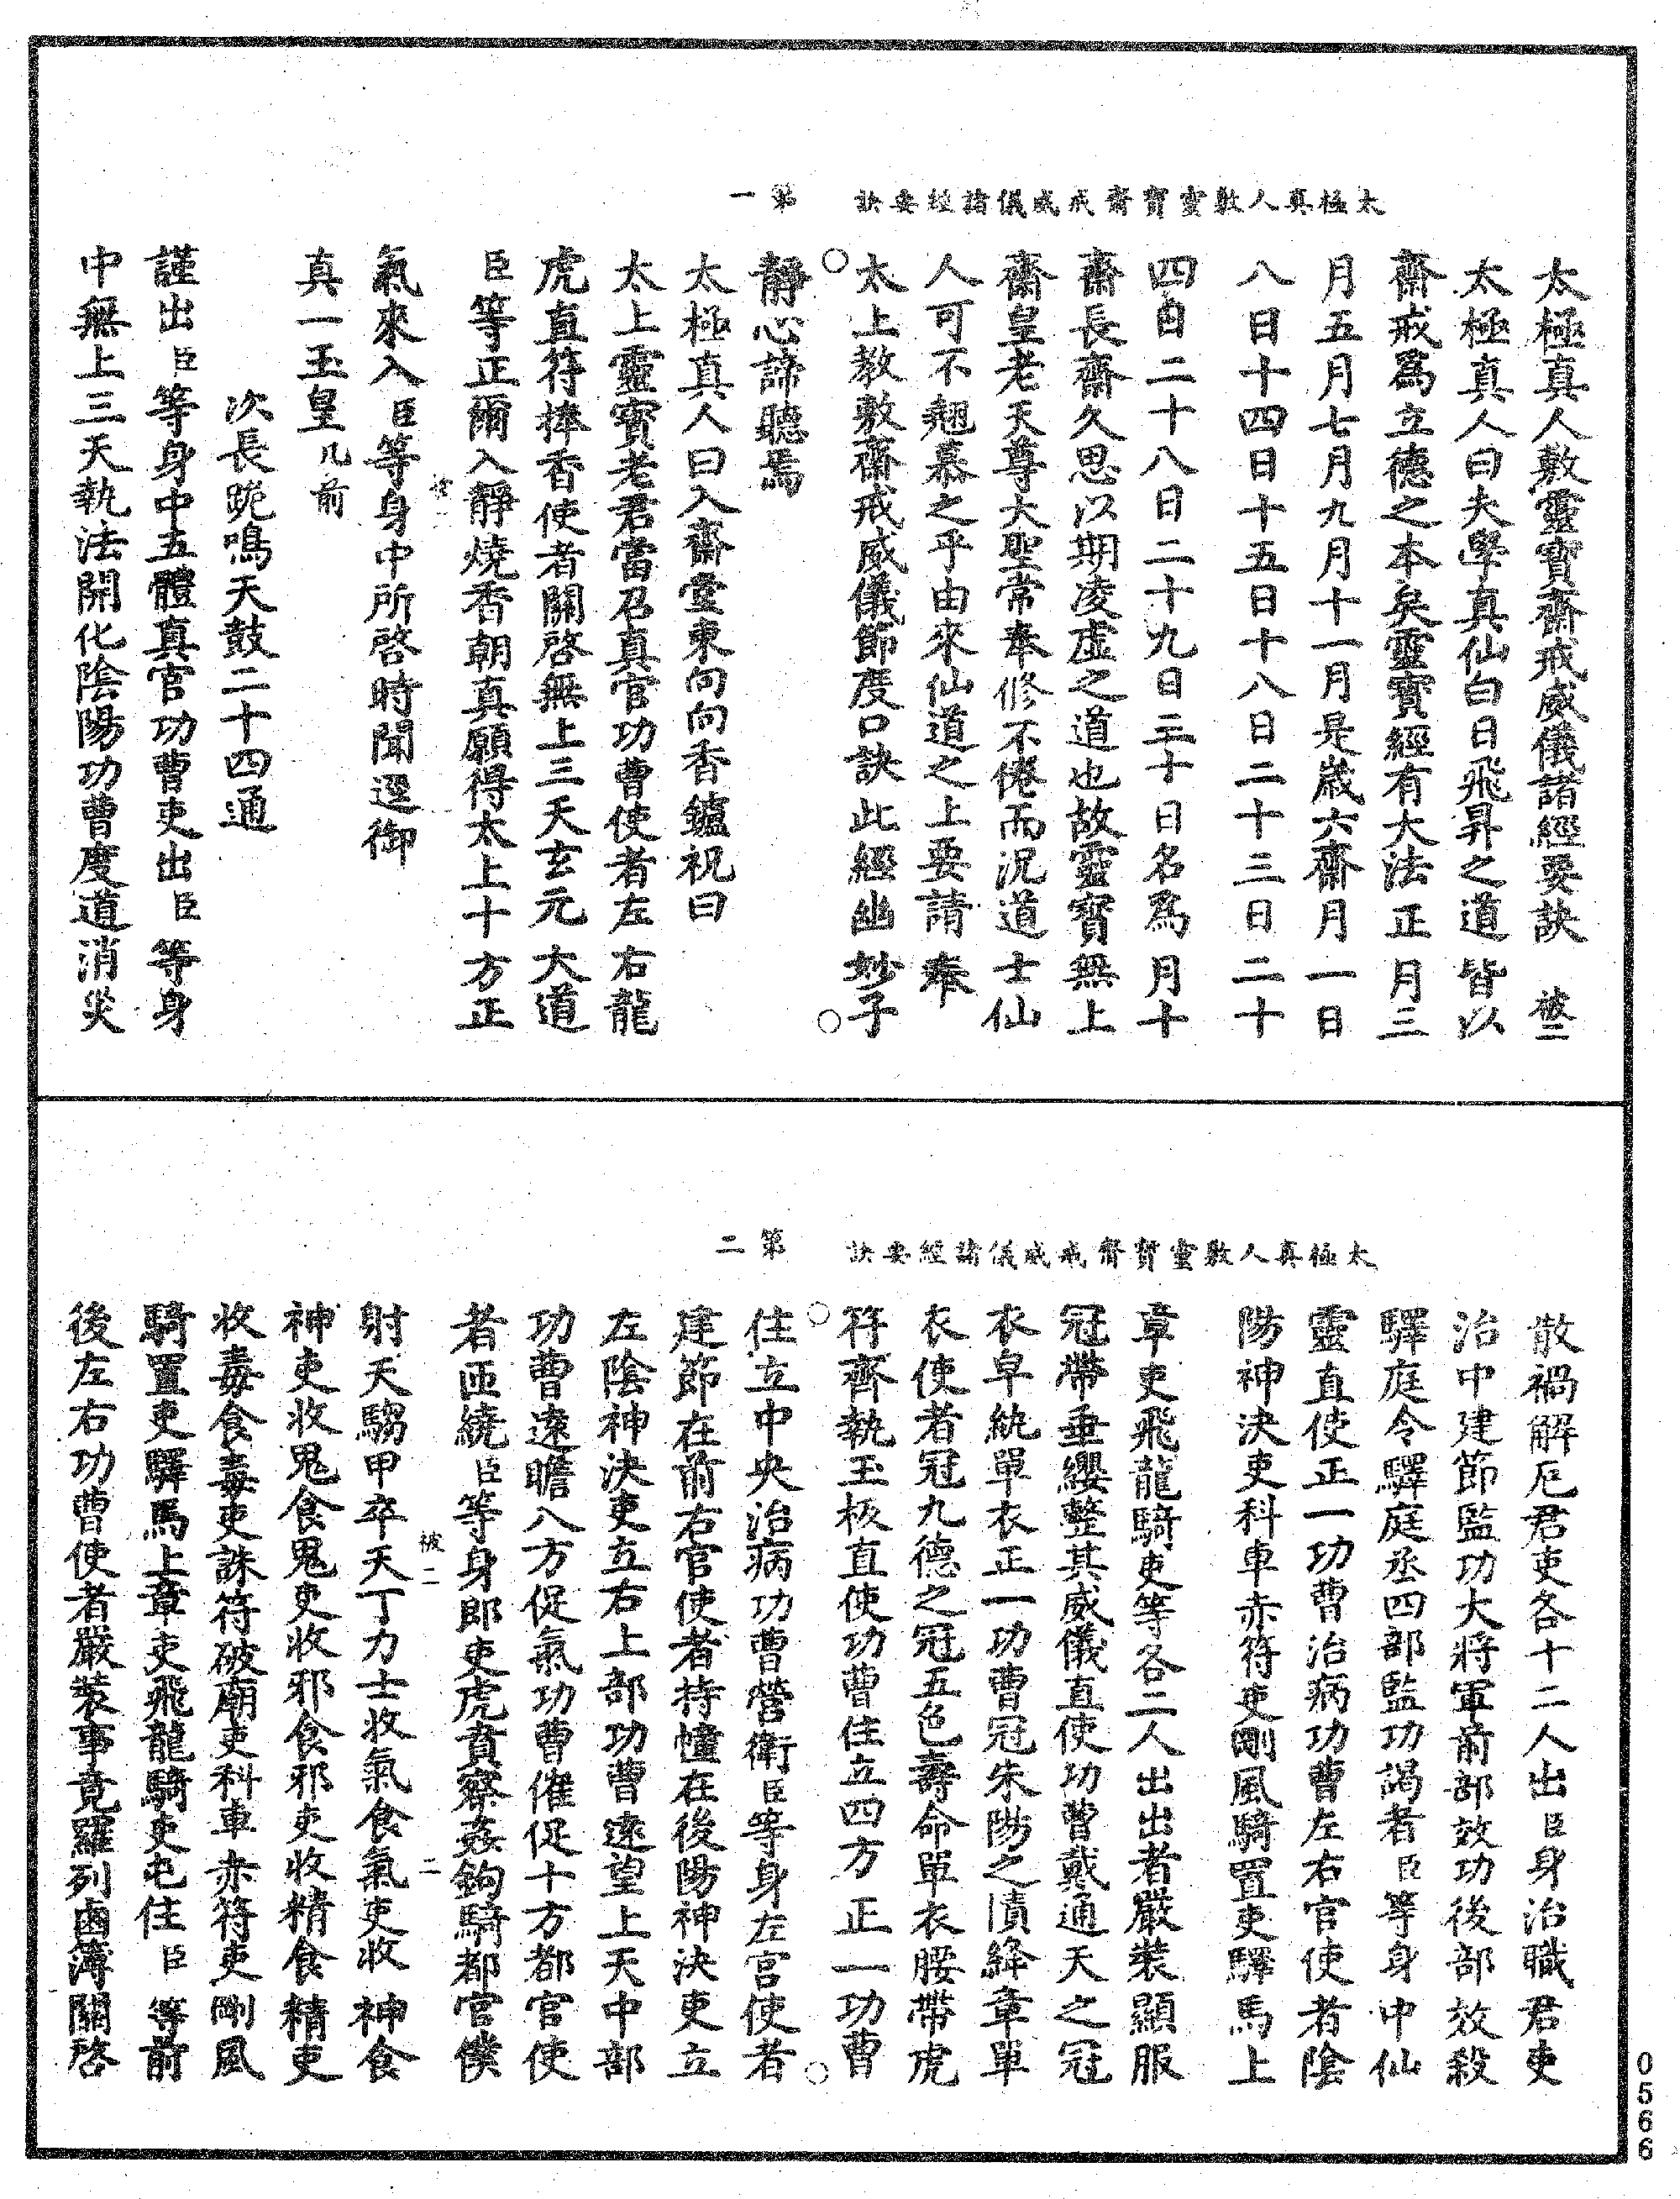 太極真人敷靈寶齋戒威儀諸經要訣 第一
太極真人敷靈寶齋戒威儀諸經要訣 被二
太極真人曰夫學真仙白日飛昇之道皆以
齋戒爲立德之本矣靈寶經有大法正月三
月五月七月九月十一月是歲六齋月一日
八日十四日十五日十八日二十三日二十
四日二十八日二十九日三十日名爲月十
齋長齋久思以期凌虛之道也故靈寶無上
齋皇老天尊大聖常奉修不倦而況道士仙
人可不翹慕之乎由來仙道之上要請奉
太上教敷齋戒威儀節度口訣此經幽妙子
靜心諦聽焉
太極真人曰入齋堂東向向香鑪祝曰
太上靈寶老君當召真官功曹使者左右龍
虎直符捧香使者關啓無上三天玄元大道
臣等正爾入靜燒香朝真願得太上十方正
氣來入臣等身中所啓時聞逕御
真一玉皇几前
次長跪鳴天鼓二十四通
謹出臣等身中五體真官功曹吏出臣等身
中無上三天執法開化陰陽功曹度道消災
太極真人敷靈寶齋戒威儀諸經要訣 第二
散禍解厄君吏各十二人出臣身治職君吏
治中建節監功大將軍前部效功後部效殺
驛庭令驛庭丞四部監功謁者臣等身中仙
靈直使正一功曹治病功曹左右官使者陰
陽神決吏科車赤符吏剛風騎置吏驛馬上
章吏飛龍騎吏等各二人出出者嚴裝顯服
冠帶垂纓整其威儀直使功曹戴通天之冠
衣皁紈單衣正一功曹冠朱陽之幘絳章單
衣使者冠九德之冠五色壽命單衣腰帶虎
符齊執玉板直使功曹住立四方正一功曹
住立中央治病功曹營衛臣等身左官使者
建節在前右官使者持幢在後陽神決吏立
左陰神決吏立右上部功曹遠望上天中部
功曹遠瞻八方促氣功曹催促十方都官使
者匝繞臣等身郎吏虎賁察姦鉤騎都官僕
射天騶甲卒天丁力士收氣食氣吏收神食
神吏收鬼食鬼吏收邪食邪吏收精食精吏
收毒食毒吏誅符破廟吏科車赤符吏剛風
騎置吏驛馬上章吏飛龍騎吏屯住臣等前
後左右功曹使者嚴裝事竟羅列鹵簿關啓
被二 二
0566